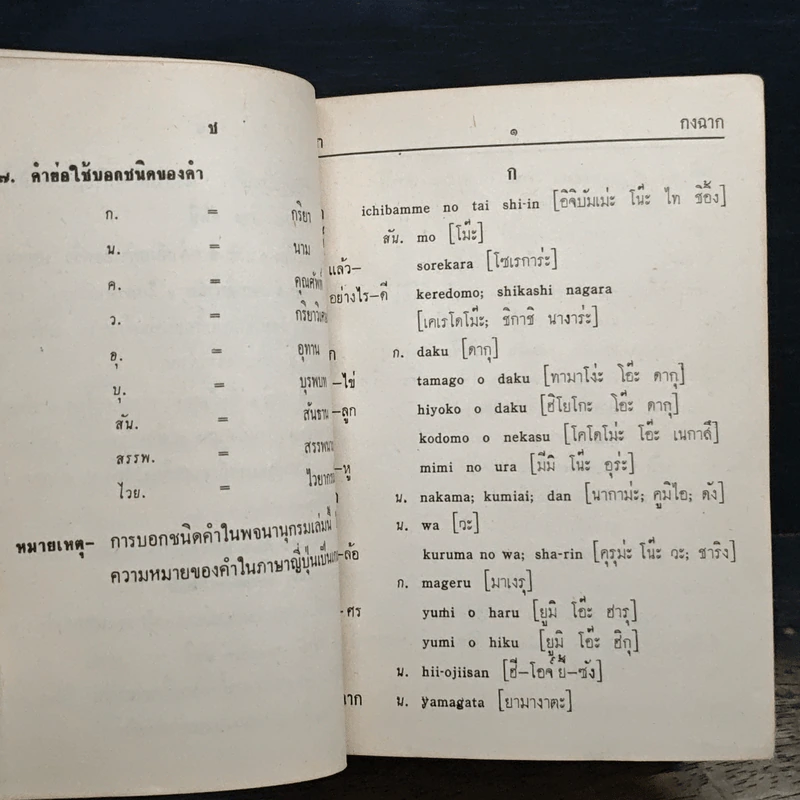 ช
๗. คำย่อใช้บอกชนิดของคำ
ก. = กริยา
น. = นาม
ค. = คุณศัพท์
ว. = กริยาวิเศษ
อุ. = อุทาน
บุ. = บุรพบท
สัน. = สันธาน
สรรพ. = สรรพนาม
ไวย. = ไวยากรณ์
หมายเหตุ- การบอกชนิดคำในพจนานุกรมเล่มนี้
ความหมายของคำในภาษาญี่ปุ่นเป็น
๑ กงฉาก
ก
ichibamme no tai shi-in [อิจิบัมเม่ะ โน๊ะ ไท ชิอิ้ง]
สัน. mo [โม๊ะ]
แล้ว- sorekara [โซเรการ่ะ]
อย่างไร-ดี keredomo; shikashi nagara
[เคเรโดโม๊ะ; ชิกาชิ นางาร่ะ]
ก ก. daku [ดากุ]
-ไข่ tamago o daku [ทามาโง่ะ โอ๊ะ ดากุ]
-ลูก hiyoko o daku [ฮิโยโกะ โอ๊ะ ดากุ]
kodomo o nekasu [โคโดโม่ะ โอ๊ะ เนกาสึ]
-หู mimi no ura [มีมิ โน๊ะ อุร่ะ]
น. nakama; kumiai; dan [นากาม่ะ; คูมิไอ; ดัง]
น. wa [วะ]
-ล้อ kuruma no wa; sha-rin [คุรุม่ะ โน๊ะ วะ; ชาริง]
ก. mageru [มาเงรุ]
-ศร yumi o haru [ยูมิ โอ๊ะ ฮารุ]
yumi o hiku [ยูมิ โอ๊ะ ฮิกุ]
น. hii-ojiisan [ฮี-โอจี้ยี-ซัง]
ฉาก น. yamagata [ยามางาตะ]